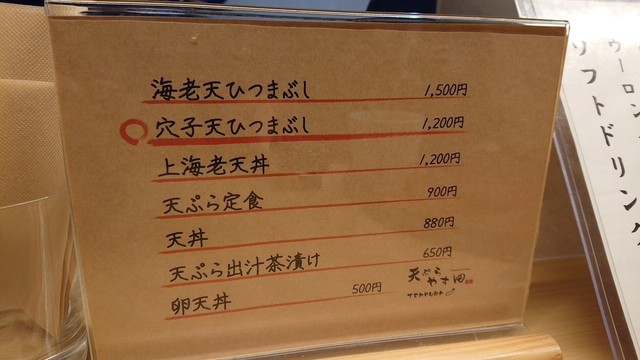 海老天ひつまぶし 1,500円
穴子天ひつまぶし 1,200円
上海老天丼 1,200円
天ぷら定食 900円
天丼 880円
天ぷら出汁茶漬け 650円
卵天丼 500円
天ぷら
やす田
ソフトドリンク
ウーロン